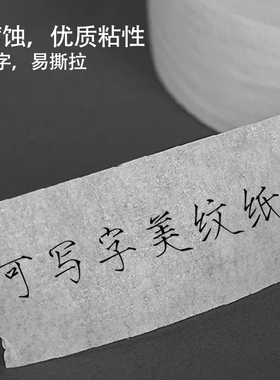 蚀，优质粘性
字，易撕拉
可写字美纹纸